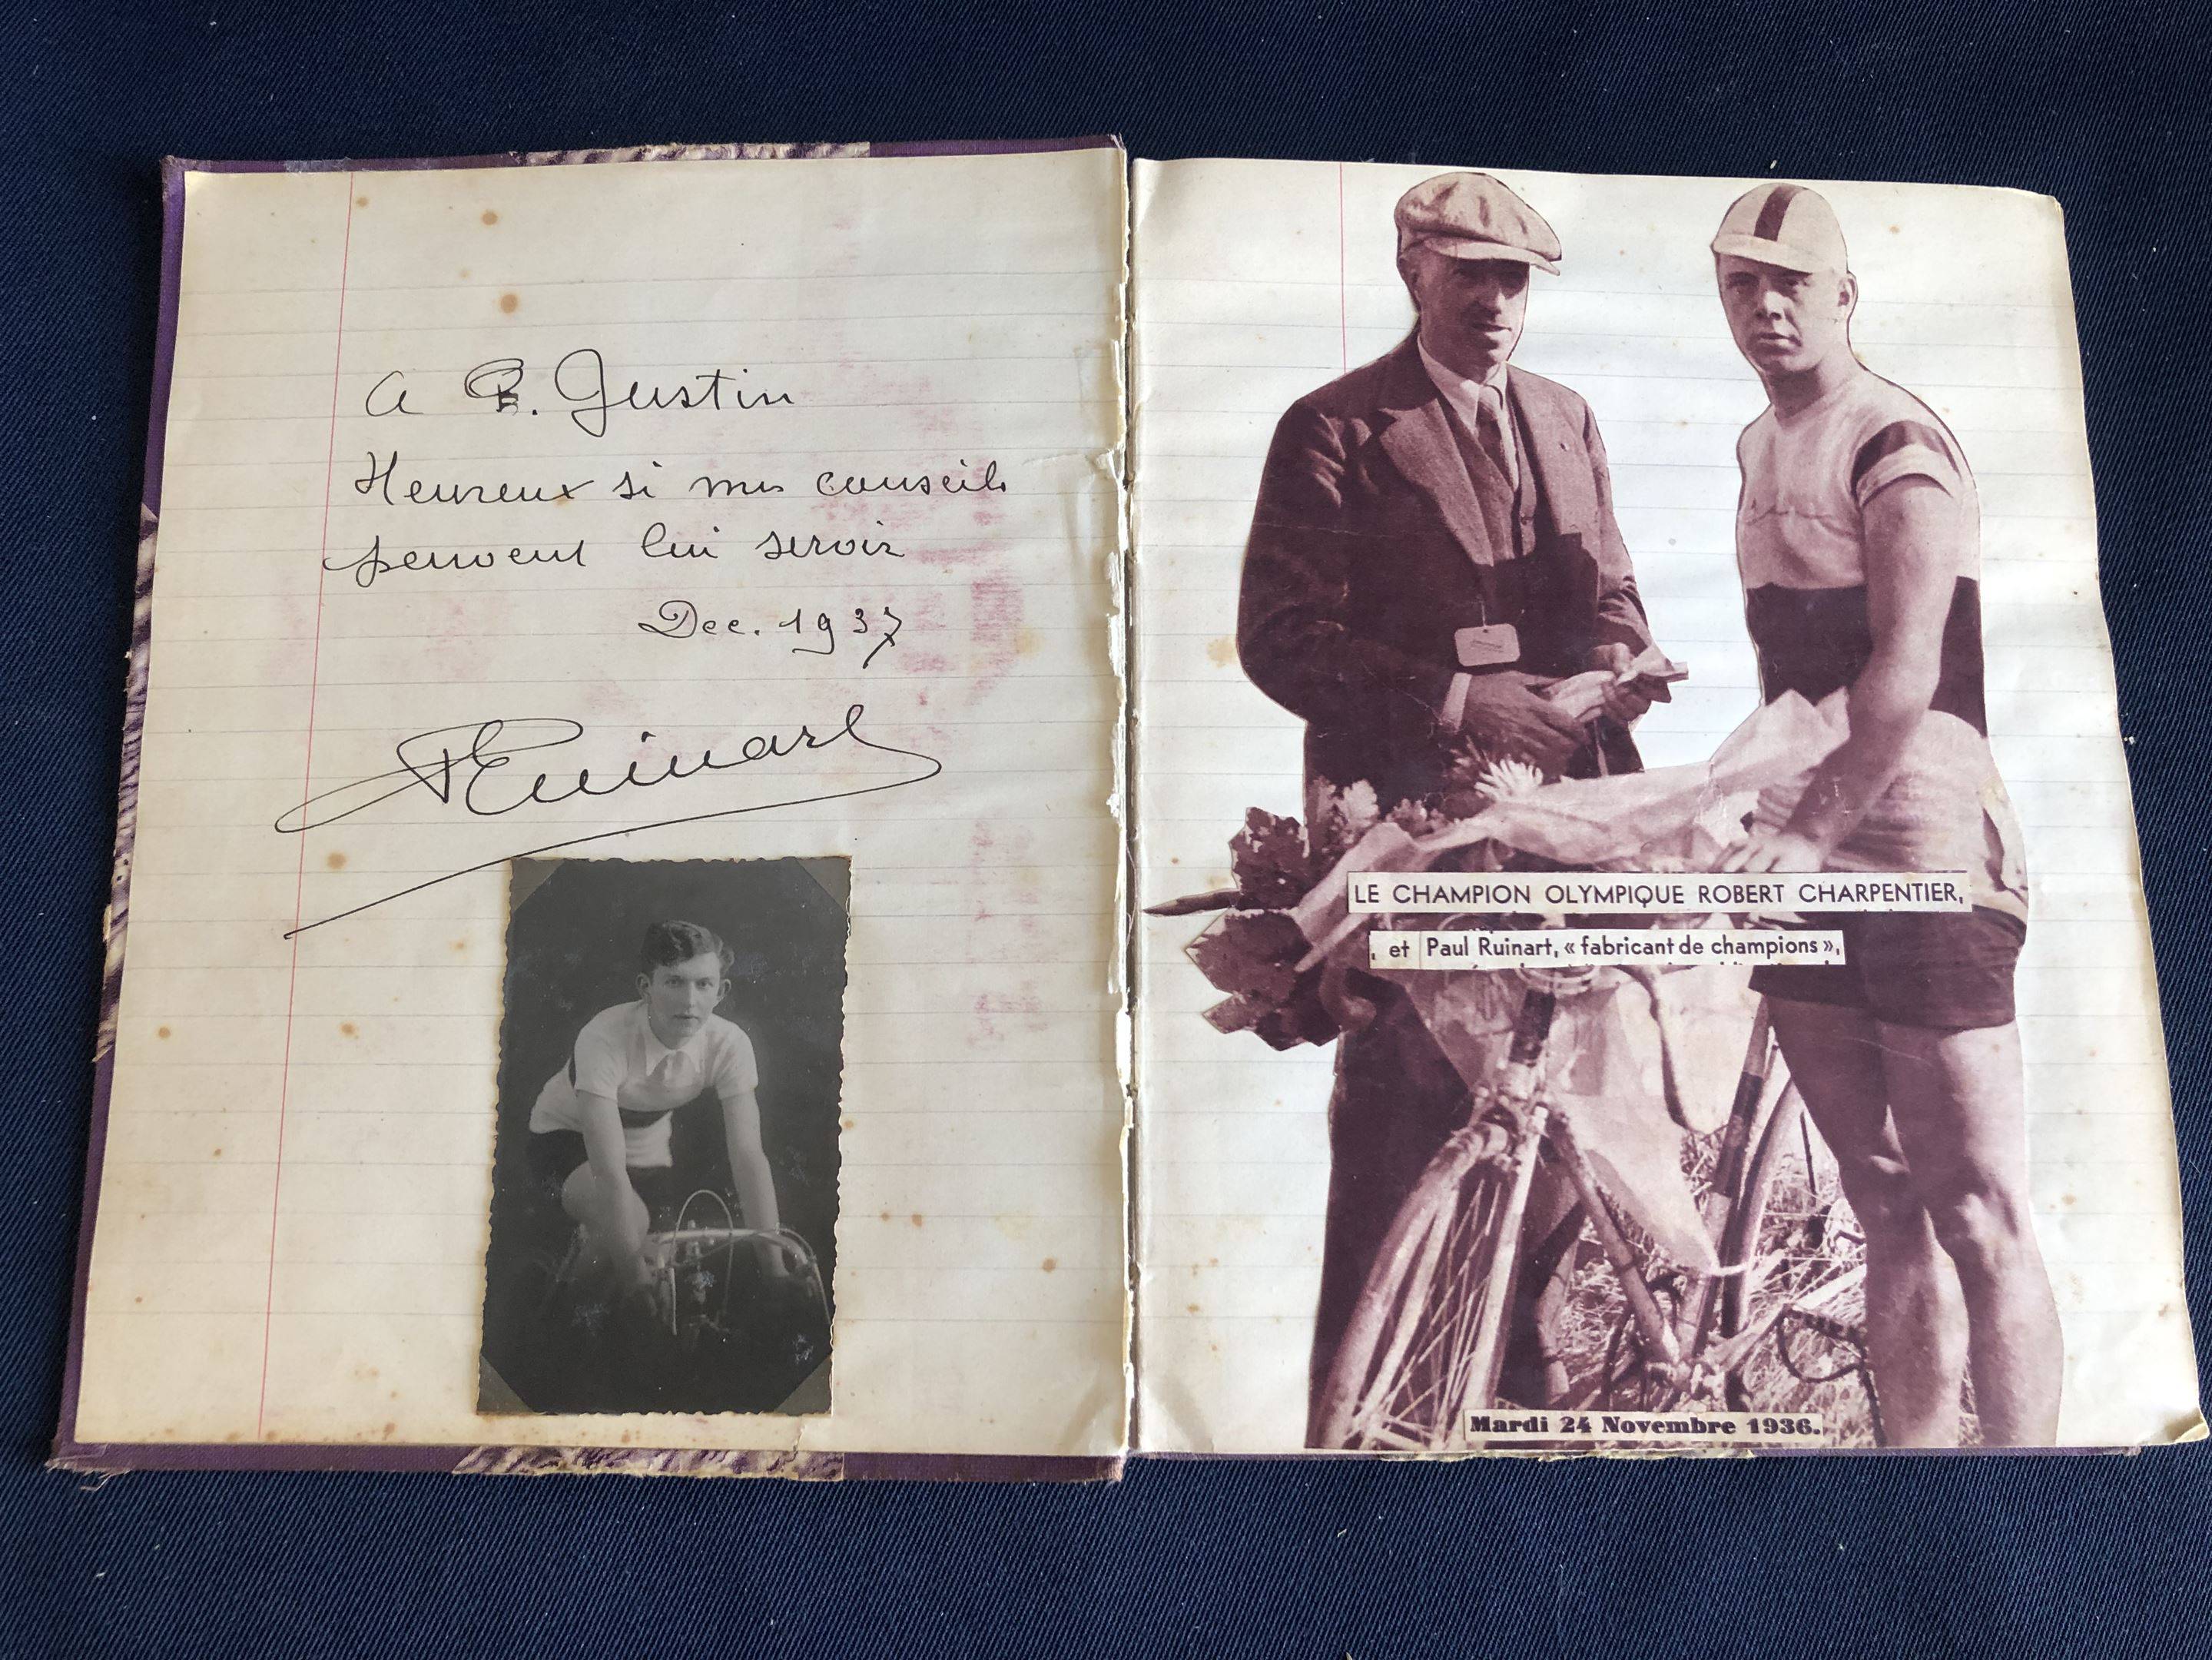 A B. Justin
Heureux si mes conseils
peuvent lui servir
Dec. 1937
PRuinart
LE CHAMPION OLYMPIQUE ROBERT CHARPENTIER,
, et Paul Ruinart, « fabricant de champions »,
Mardi 24 Novembre 1936.